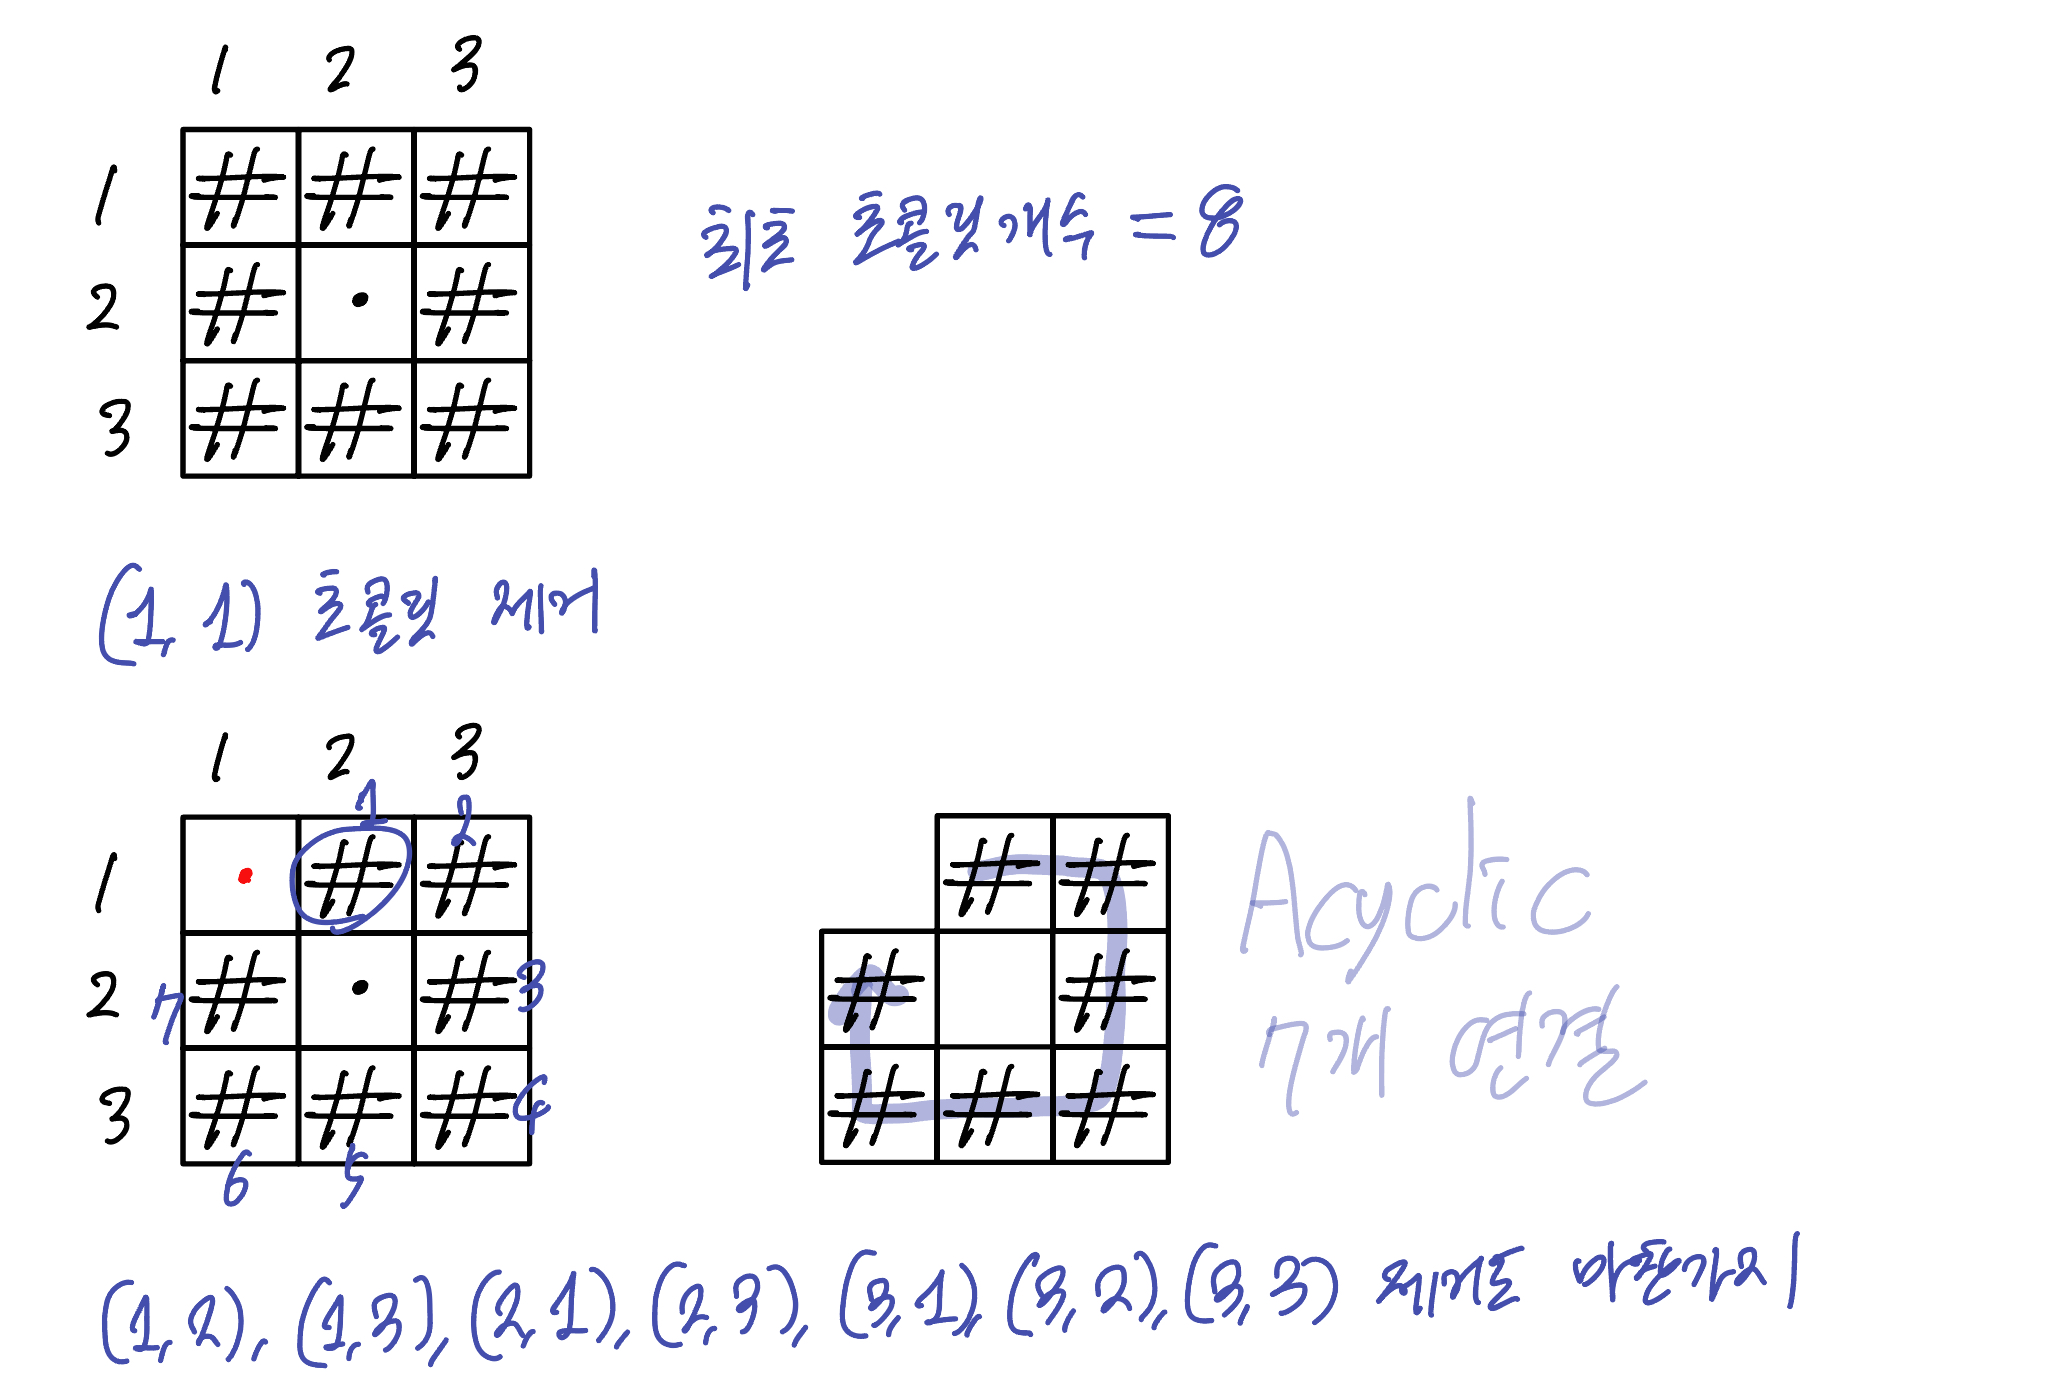 1 2 3
1 # # #
2 # . #
3 # # #
최초 초콜릿 개수 = 8
(1, 1) 초콜릿 제거
1 2 3
1 2
1 . # #
2 7 # . # 3
3 # # # 4
6 5
# #
# #
# # #
Acyclic
7개 연결
(1, 2), (1, 3), (2, 1), (2, 3), (3, 1), (3, 2), (3, 3) 제거도 마찬가지